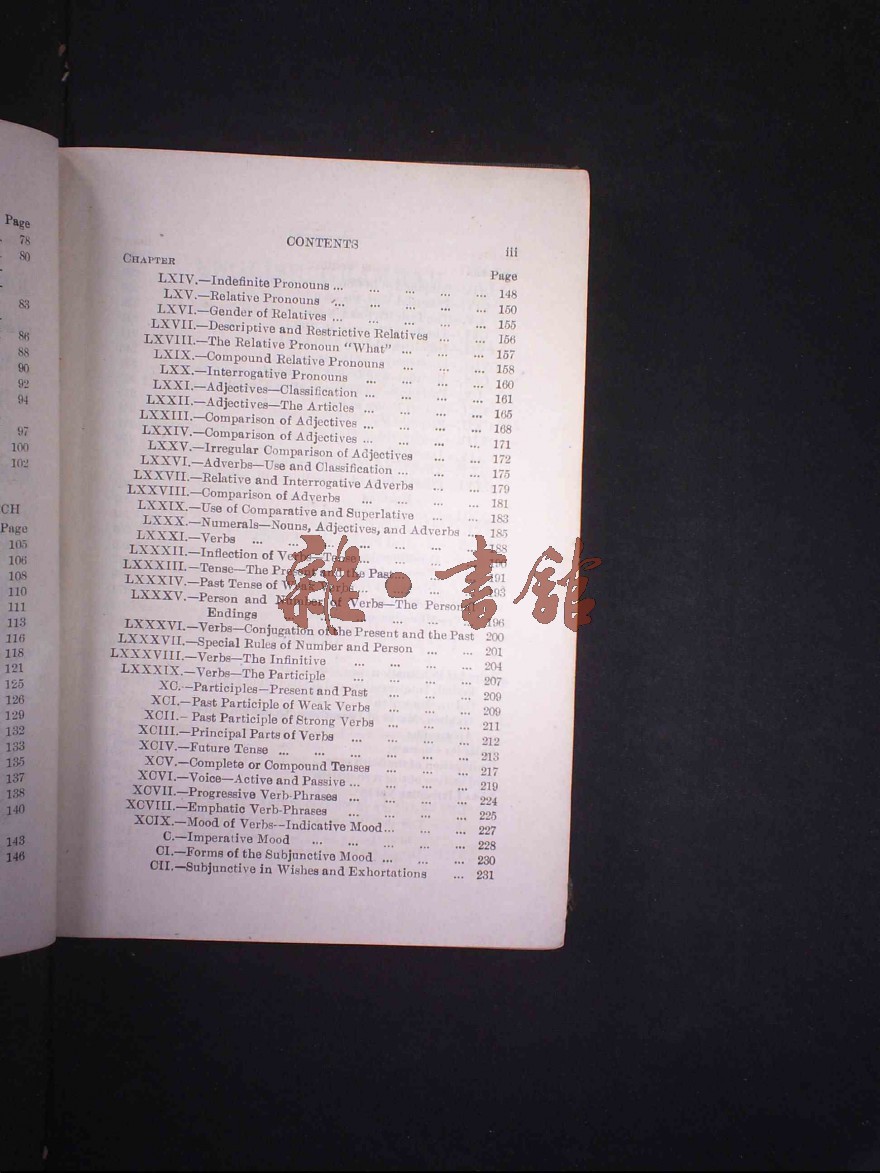 Page
78
80
83
86
88
90
92
94
97
100
102
CH
Page
105
106
108
110
111
113
116
118
121
125
126
129
132
133
135
137
138
140
143
146
CONTENTS
iii
CHAPTER
Page
LXIV.—Indefinite Pronouns ... ... ... ... ... 148
LXV.—Relative Pronouns ... ... ... ... ... 150
LXVI.—Gender of Relatives ... ... ... ... ... 155
LXVII.—Descriptive and Restrictive Relatives ... ... 156
LXVIII.—The Relative Pronoun "What" ... ... ... 157
LXIX.—Compound Relative Pronouns ... ... ... 158
LXX.—Interrogative Pronouns ... ... ... ... 160
LXXI.—Adjectives—Classification ... ... ... ... 161
LXXII.—Adjectives—The Articles ... ... ... ... 165
LXXIII.—Comparison of Adjectives ... ... ... ... 168
LXXIV.—Comparison of Adjectives ... ... ... ... 171
LXXV.—Irregular Comparison of Adjectives ... ... 172
LXXVI.—Adverbs—Use and Classification ... ... ... 175
LXXVII.—Relative and Interrogative Adverbs ... ... 179
LXXVIII.—Comparison of Adverbs ... ... ... ... 181
LXXIX.—Use of Comparative and Superlative ... ... 183
LXXX.—Numerals—Nouns, Adjectives, and Adverbs ... 185
LXXXI.—Verbs ... ... ... ... ... ... 188
LXXXII.—Inflection of Verbs—Tense ... ... ... ... 190
LXXXIII.—Tense—The Present and the Past ... ... ... 191
LXXXIV.—Past Tense of Weak Verbs ... ... ... ... 193
LXXXV.—Person and Number of Verbs—The Personal
Endings ... ... ... ... ... ... 196
LXXXVI.—Verbs—Conjugation of the Present and the Past 200
LXXXVII.—Special Rules of Number and Person ... ... 201
LXXXVIII.—Verbs—The Infinitive ... ... ... ... 204
LXXXIX.—Verbs—The Participle ... ... ... ... 207
XC.—Participles—Present and Past ... ... ... 209
XCI.—Past Participle of Weak Verbs ... ... ... 209
XCII.—Past Participle of Strong Verbs ... ... ... 211
XCIII.—Principal Parts of Verbs ... ... ... ... 212
XCIV.—Future Tense ... ... ... ... ... ... 213
XCV.—Complete or Compound Tenses ... ... ... 217
XCVI.—Voice—Active and Passive ... ... ... ... 219
XCVII.—Progressive Verb-Phrases ... ... ... ... 224
XCVIII.—Emphatic Verb-Phrases ... ... ... ... 225
XCIX.—Mood of Verbs—Indicative Mood ... ... ... 227
C.—Imperative Mood ... ... ... ... ... 228
CI.—Forms of the Subjunctive Mood ... ... ... 230
CII.—Subjunctive in Wishes and Exhortations ... 231
雜·書館